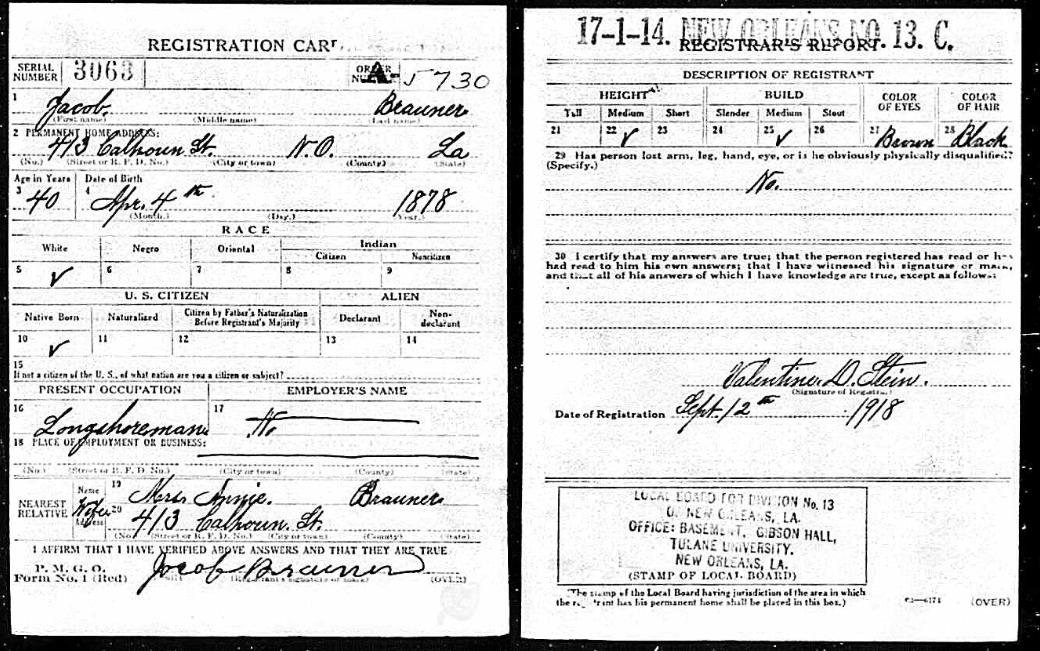 REGISTRATION CARD
SERIAL NUMBER 3063 ORDER NUMBER A-5730
1 Jacob. Brauner
(First name) (Middle name) (Last name)
2 PERMANENT HOME ADDRESS:
413 Calhoun St. N.O. La
(No.) (Street or R. F. D. No.) (City or town) (County) (State)
Age in Years Date of Birth
3 40 4 Apr. 4th 1878
(Month.) (Day.) (Year.)
RACE
White Negro Oriental Indian
Citizen Noncitizen
5 ✓ 6 7 8 9
U. S. CITIZEN ALIEN
Native Born Naturalized Citizen by Father's Naturalization Before Registrant's Majority Declarant Non-declarant
10 ✓ 11 12 13 14
15
If not a citizen of the U. S., of what nation are you a citizen or subject?
PRESENT OCCUPATION EMPLOYER'S NAME
16 Longshoreman 17 No
18 PLACE OF EMPLOYMENT OR BUSINESS:
(No.) (Street or R. F. D. No.) (City or town) (County) (State)
NEAREST RELATIVE Name 19 Mrs. Annie. Brauner
Wife
Address 20 413 Calhoun. St.
(No.) (Street or R. F. D. No.) (City or town) (County) (State)
I AFFIRM THAT I HAVE VERIFIED ABOVE ANSWERS AND THAT THEY ARE TRUE
P. M. G. O.
Form No. 1 (Red) Jacob Brauner
(Registrant's signature or mark) (OVER)
17-1-14. NEW ORLEANS NO. 13. C.
REGISTRAR'S REPORT
DESCRIPTION OF REGISTRANT
HEIGHT BUILD COLOR OF EYES COLOR OF HAIR
Tall Medium Short Slender Medium Stout
21 22 ✓ 23 24 25 ✓ 26 27 Brown 28 Black
29 Has person lost arm, leg, hand, eye, or is he obviously physically disqualified?
(Specify.)
No.
30 I certify that my answers are true; that the person registered has read or has
had read to him his own answers; that I have witnessed his signature or mark,
and that all of his answers of which I have knowledge are true, except as follows:
Valentine. D. Stein.
(Signature of Registrar)
Date of Registration Sept. 12th 1918
LOCAL BOARD FOR DIVISION No. 13
OF NEW ORLEANS, LA.
OFFICE: BASEMENT, GIBSON HALL,
TULANE UNIVERSITY.
NEW ORLEANS, LA.
(STAMP OF LOCAL BOARD)
(The stamp of the Local Board having jurisdiction of the area in which
the registrant has his permanent home shall be placed in this box.)
(OVER)